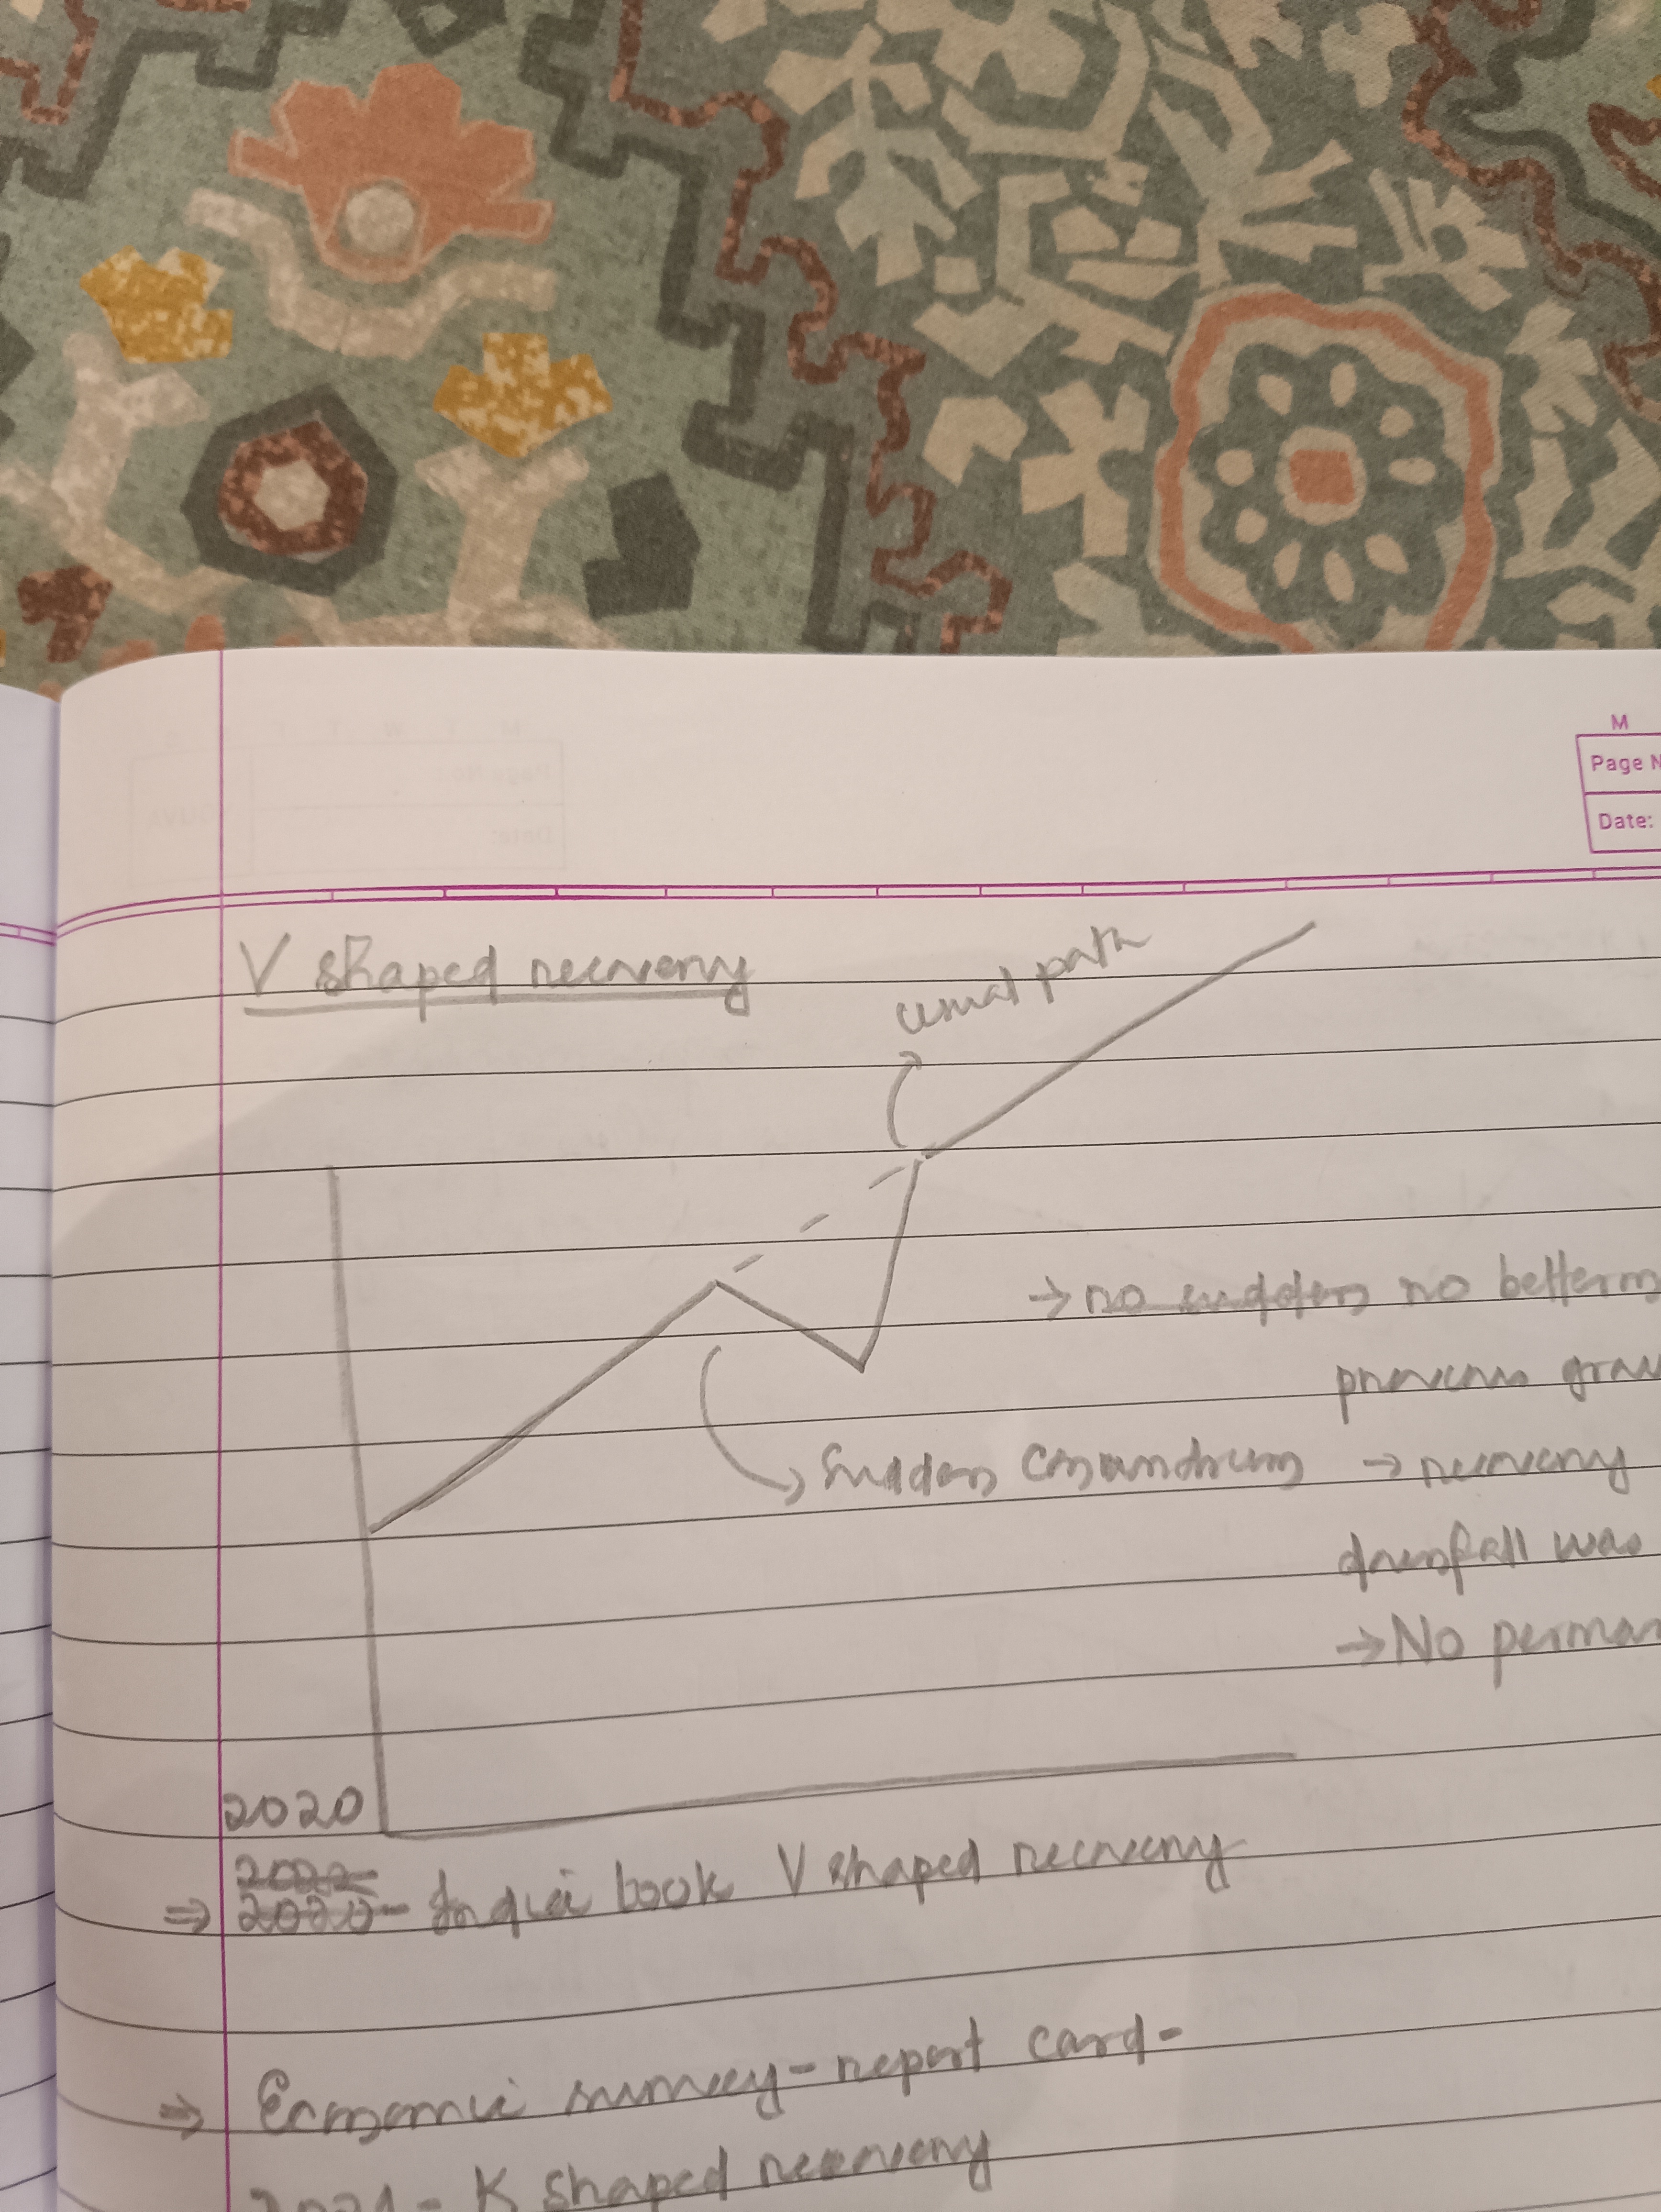 M
Page N
Date:
V shaped recovery
usual path
→ no sudden no betterm
previous grow
sudden conundrum → recovery
downfall was
→ No perman
2020
⇒ 2020 - In qui book V shaped recovery
⇒ Economic survey - report card -
2021 - K shaped recovery